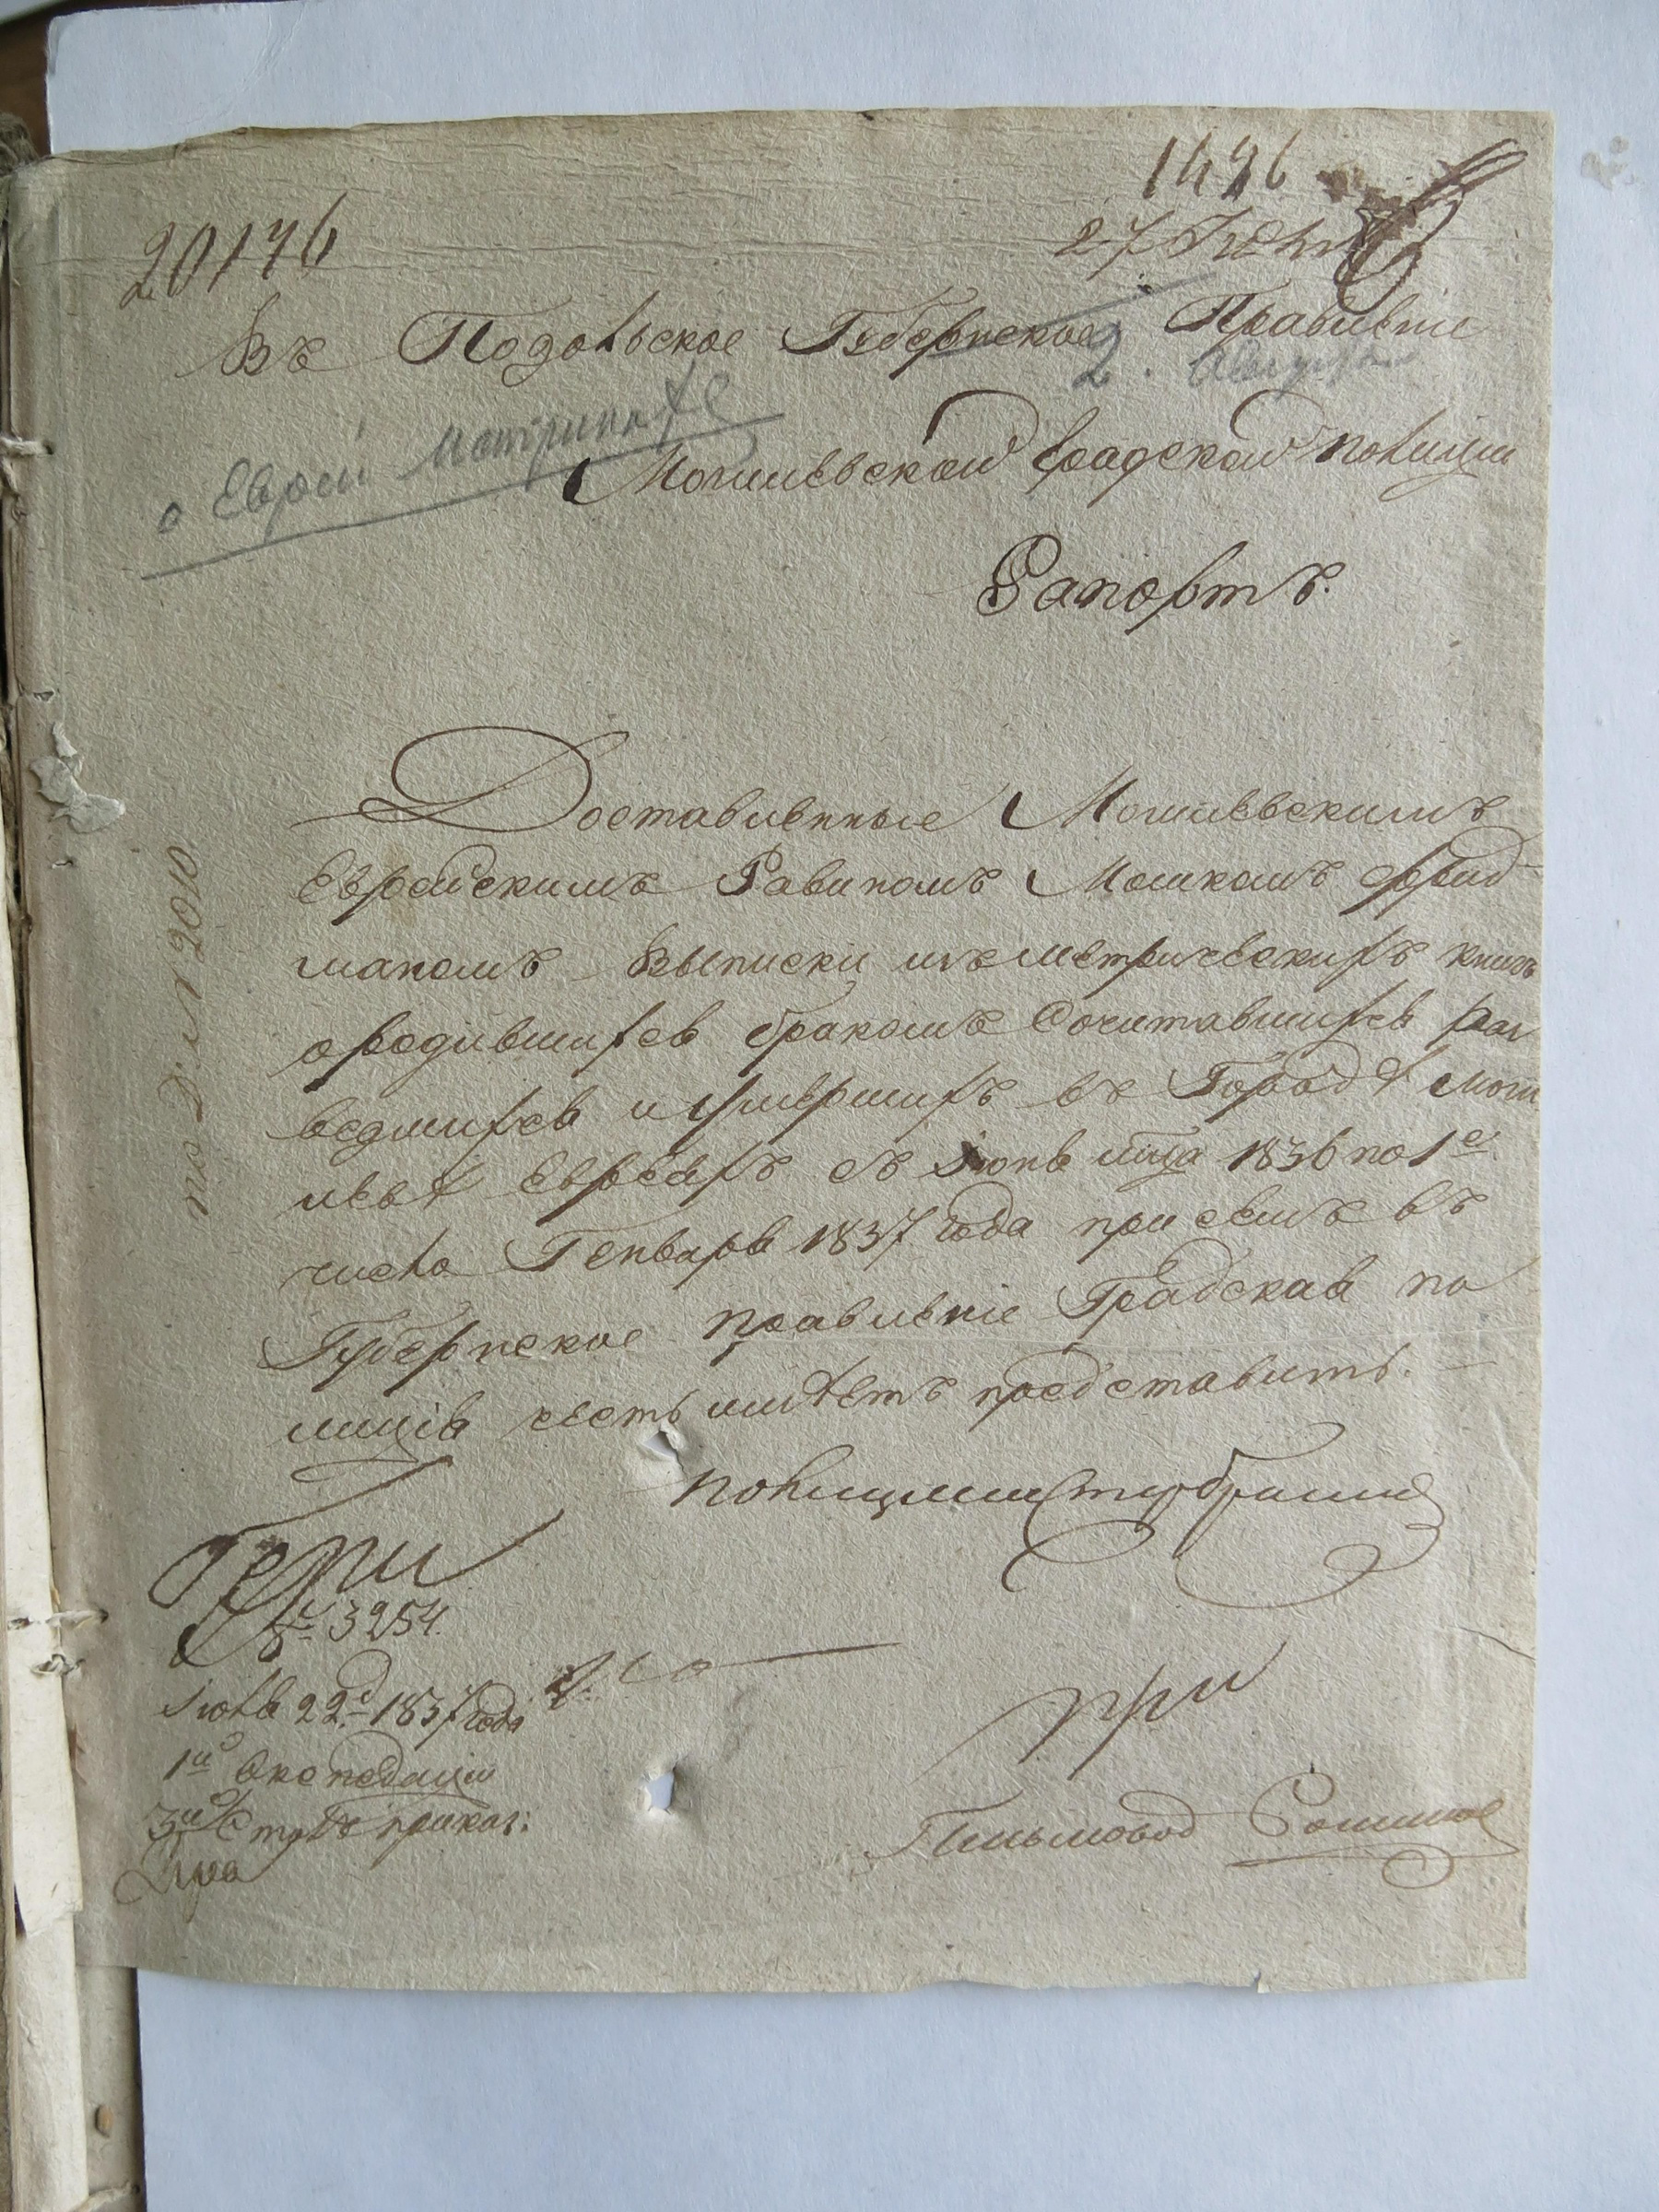 20176
27 Июня
Въ Подольское Губернское Правленіе
2. Августа
о Еврей
Могилевской градской полиціи
Рапортъ.
Доставленные Могилевскимъ
Еврейскимъ Равиномъ Мошкомъ Фрид
маномъ Выписки изъ метрическихъ книгъ
о родившихся бракомъ Сочитавшихся раз
ведшихся и умершихъ въ Городѣ Моги
левѣ Евреахъ съ Іюня мца 1836 по 1е
число Генваря 1837 года при семъ въ
Губернское правленіе Градская по
лиція честь имѣетъ представить.
по 2010
Полицмейстеръ
№ 3254.
Іюля 22 д 1837 года
1й Экспедиціи
3й Столъ приказ:
Письмовод